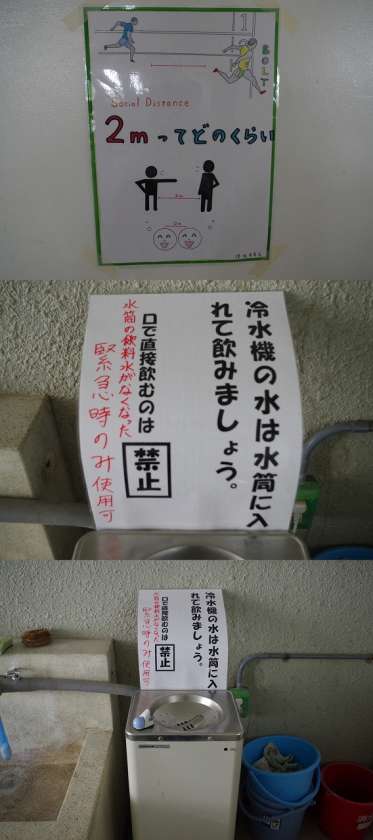 1
BOLT
Social Distance
2mってどのくらい
2m
2m
冷水機の水は水筒に入
れて飲みましょう。
口で直接飲むのは
禁止
水筒の飲料水がなくなった
緊急時のみ使用可
冷水機の水は水筒に入
れて飲みましょう。
口で直接飲むのは
禁止
水筒の飲料水がなくなった
緊急時のみ使用可